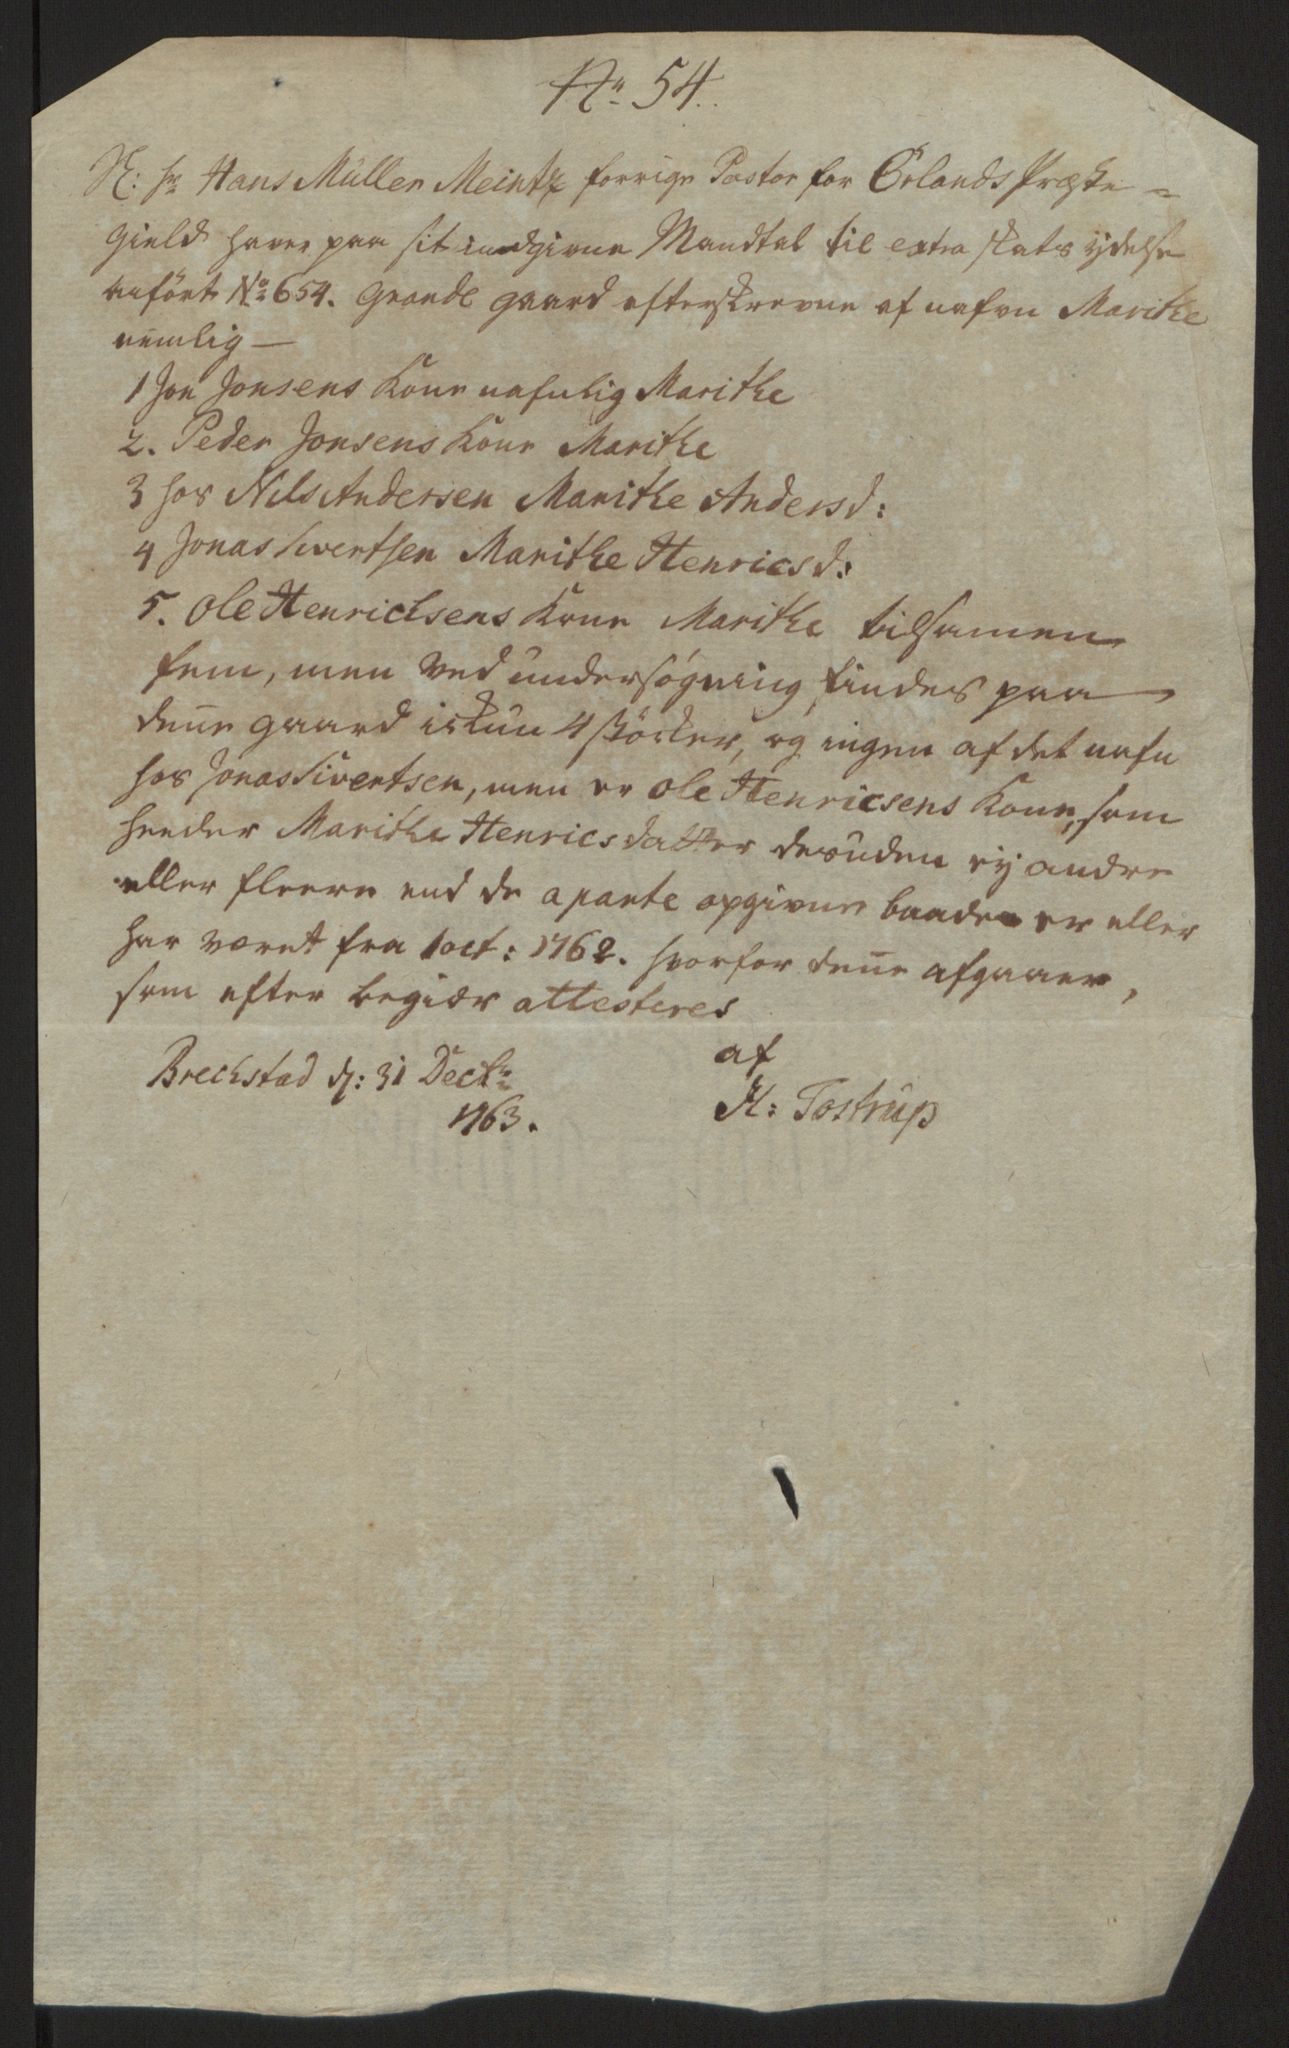 No 54.
H: Hr Hans Müller Meintz forrige Pastor for Örlands Præste=
Gield haver paa sit indgivne Mandtal til extra skats ÿdelse
anført No 654. Grande gaard efterskrevne af nafvn Marithe
nemlig —
1 Jon Jonsens Kone nafnlig Marithe
2. Peder Jonsens Kone Marithe
3 hos Nils Andersen Marithe Andersd:
4 Jonas Sivertsen Marithe Henricsd:
5. Ole Henrichsens Kone Marithe tilsamen
fem, men ved undersøgning findes paa
denne gaard ickun 4 støcker, og ingen af det nafn
hos Jonas Sivertsen, men er Ole Henricsens Kone, som
heeder Marithe Henricsdatter desuden eÿ andre
eller fleere end de aparte opgivne baade er eller
har været fra 1 oct: 1762. hvorfor denne afgaaer,
som efter begiær attesteres
af
Brechstad d: 31 Decbr:
1763.
H: Tostrup